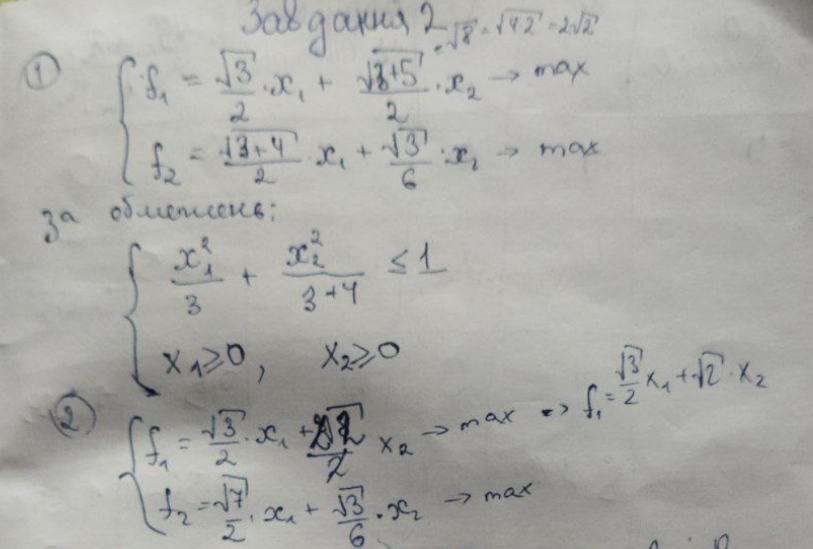 Завдання 2
= √8 = √4·2 = 2√2
① { f₁ = √3/2 · x₁ + √3+5/2 · x₂ → max
f₂ = √3+4/2 · x₁ + √3/6 · x₂ → max
за обмежень:
{ x₁²/3 + x₂²/3+4 ≤ 1
x₁ ≥ 0, x₂ ≥ 0
② { f₁ = √3/2 · x₁ + 2√2/2 x₂ → max => f₁ = √3/2 x₁ + √2 · x₂
f₂ = √7/2 · x₁ + √3/6 · x₂ → max